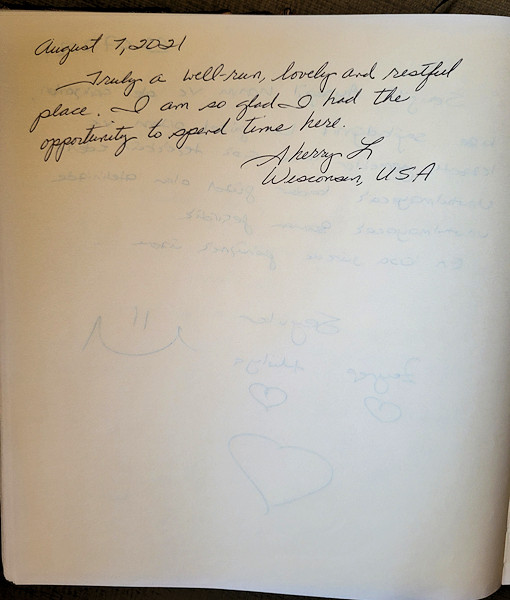 August 7, 2021
Truly a well-run, lovely and restful
place. I am so glad I had the
opportunity to spend time here.
Sherry L
Wisconsin, USA